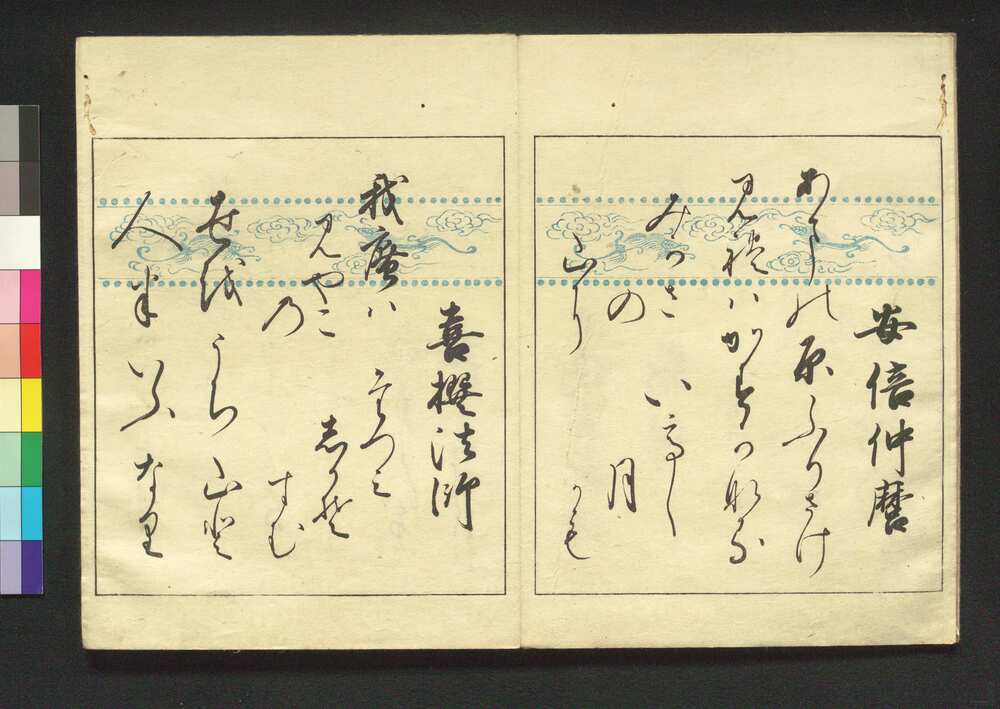 安倍仲麿
あまの原ふりさけ
見れハかすかなる
みかさ
の
山に
いてし
月
かも
喜撰法師
我庵ハ
みやこ
の
たつミ
しかそ
すむ
世をうち山と
人はいふなり